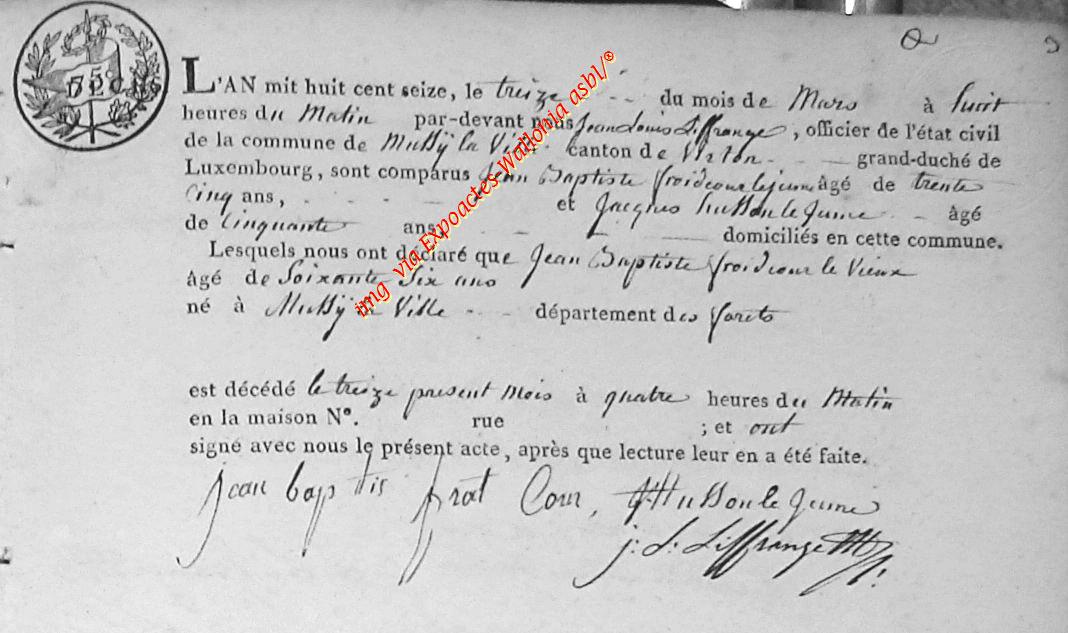 75C
L'AN mit huit cent seize, le treize du mois de Mars à huit
heures du Matin par-devant nous Jean Louis Liffrange, officier de l'état civil
de la commune de Mussÿ la Ville canton de Virton grand-duché de
Luxembourg, sont comparus Jean Baptiste froidcour le jeune âgé de trente
Cinq ans, et Jacques husson le Jeune âgé
de Cinquante ans, domiciliés en cette commune.
Lesquels nous ont déclaré que Jean Baptiste froidcour le Vieux
âgé de Soixante Six ans
né à Mussÿ la Ville département des forets
est décédé le treize present mois à quatre heures du Matin
en la maison N°. rue ; et ont
signé avec nous le présent acte, après que lecture leur en a été faite.
Jean baptis froat Cour, J. Husson le Jeune
j: L: Liffrange
img via Expoactes Wallonia asbl/®